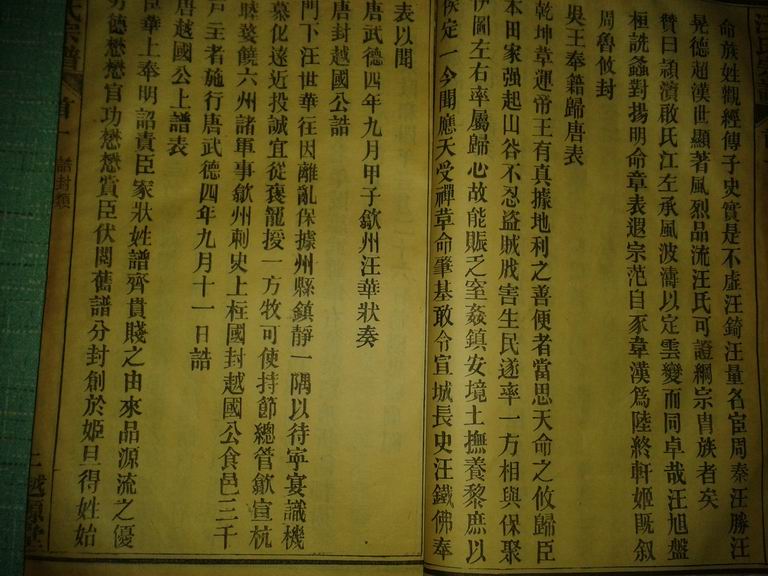 命族姓觀經傳子史實是不虛汪錡汪量名宦周秦汪勝汪
晃德超漢世顯著風烈品流汪氏可證綱宗胄族者矣
贊曰潁濟啟氏江左承風波濤以定雲變而同卓哉汪旭盤
桓詵螽對揚明命章表遐宗范自豕韋漢為陸終軒姬既叙
周魯攸封
吳王奉籍歸唐表
乾坤草運帝王有真據地利之善便者當思天命之攸歸臣
本田家强起山谷不忍盜賊戕害生民遂率一方相與保聚
伊圖左右率屬歸心故能賑乏窒姦鎮安境土撫養黎庶以
俟定一今聞應天受禪革命肇基敢令宣城長史汪鐵佛奉
表以聞
唐武德四年九月甲子歙州汪華狀奏
唐封越國公誥
門下汪世華往因離亂保據州縣鎮靜一隅以待寧宴識機
慕化遠近投誠宜從褒寵授一方牧可使持節總管歙宣杭
睦婺饒六州諸軍事歙州刺史上柱國封越國公食邑三千
戶主者施行唐武德四年九月十一日誥
唐越國公上譜表
臣華上奉明詔責臣家狀姓譜齊貴賤之由來品源流之優
劣德懋懋官功懋懋賞臣伏閱舊譜分封創於姬旦得姓始
氏宗譜
首一
誥封類
越源堂